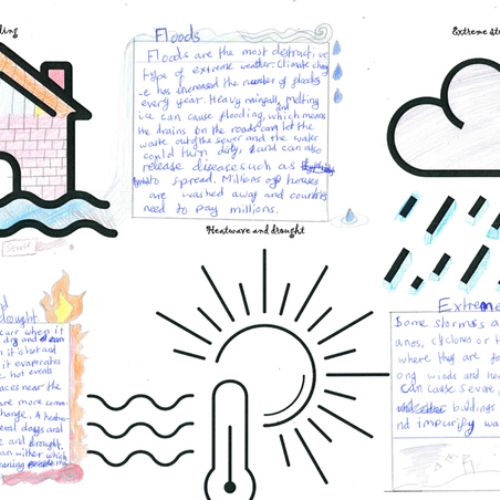 Extreme
Floods
Floods are the most destructive
type of extreme weather. Climate chang
-e has increased the number of floods
every year. Heavy rainfall, melting
ice can cause flooding, and which means
the drains on the roads can't let the
waste out of the sewer and the water
could turn dirty, and can also
release diseases such as
to spread. Millions of houses
are washed away and countries
need to pay millions.
Heatwave and drought
drought
curr when it
dry and
it is hot and
it evaporates
hot events
aces near the
are more comm
change. A heatw
eral days and
e and drought.
an wither which
Extreme
Some storms
anes, cyclones or t
where they are fo
ong winds and hea
can cause severe
buildings
nd impurify wa